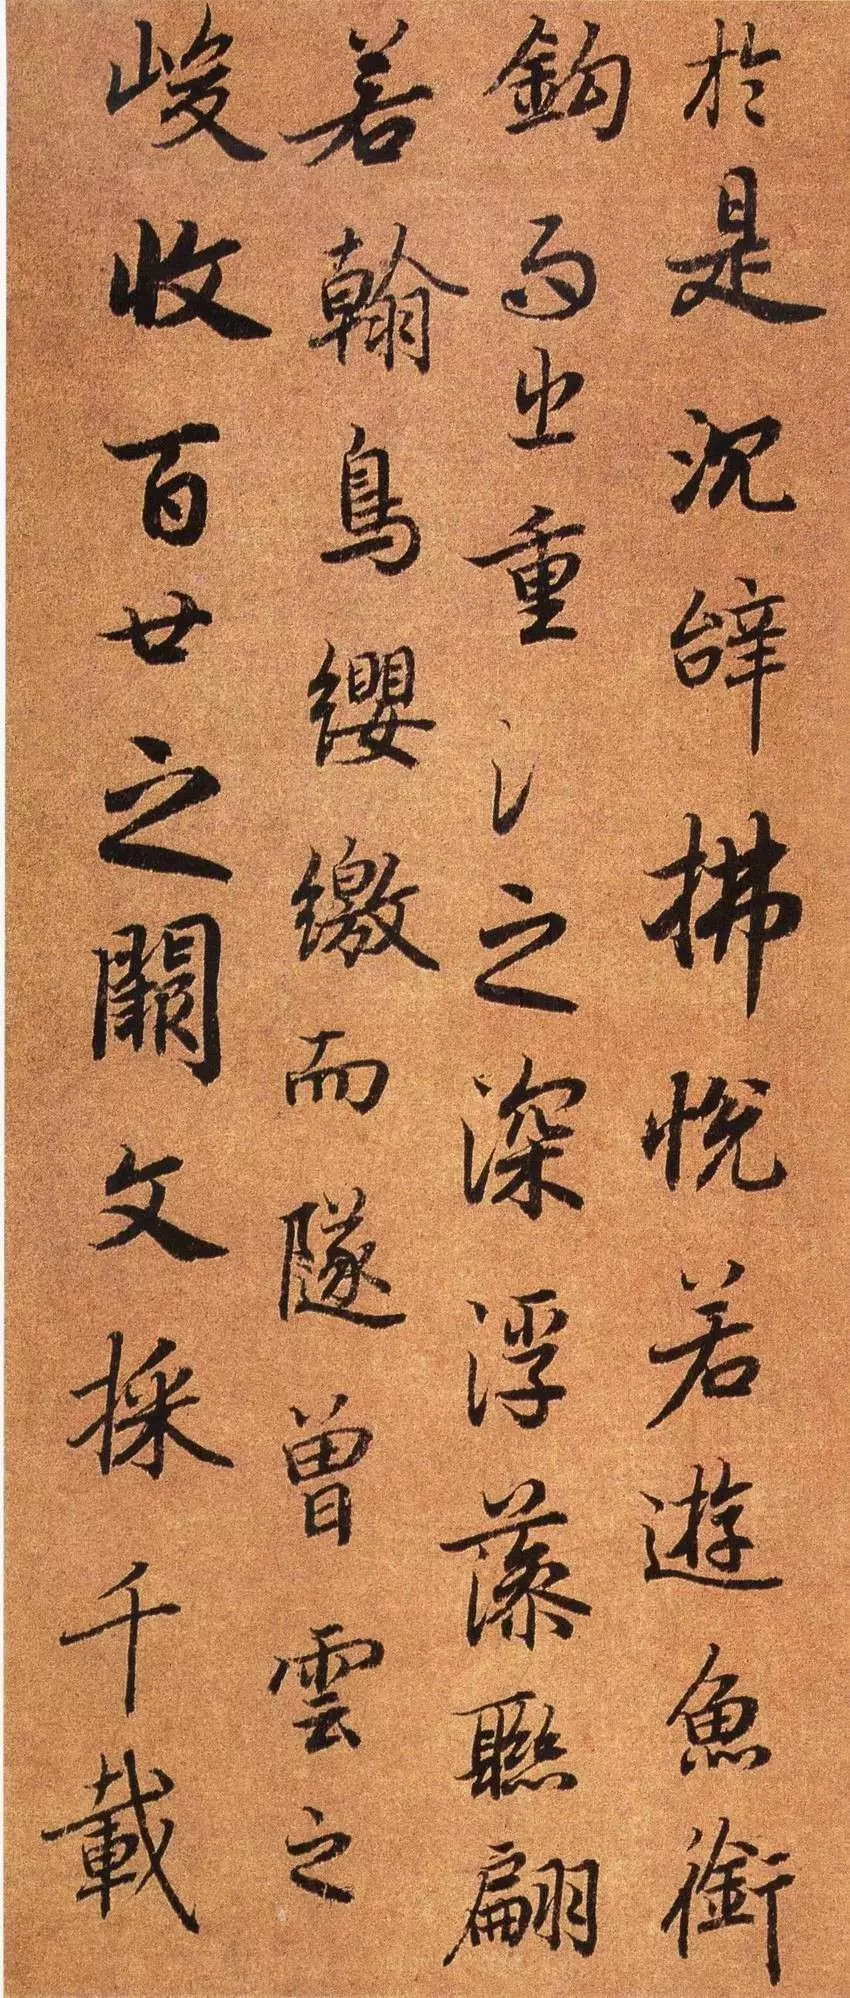 於是沉辝拂悅若遊魚銜
鈎而出重氵之深浮藻聯翩
若翰鳥纓繳而隧曾雲之
峻收百廿之闕文採千載